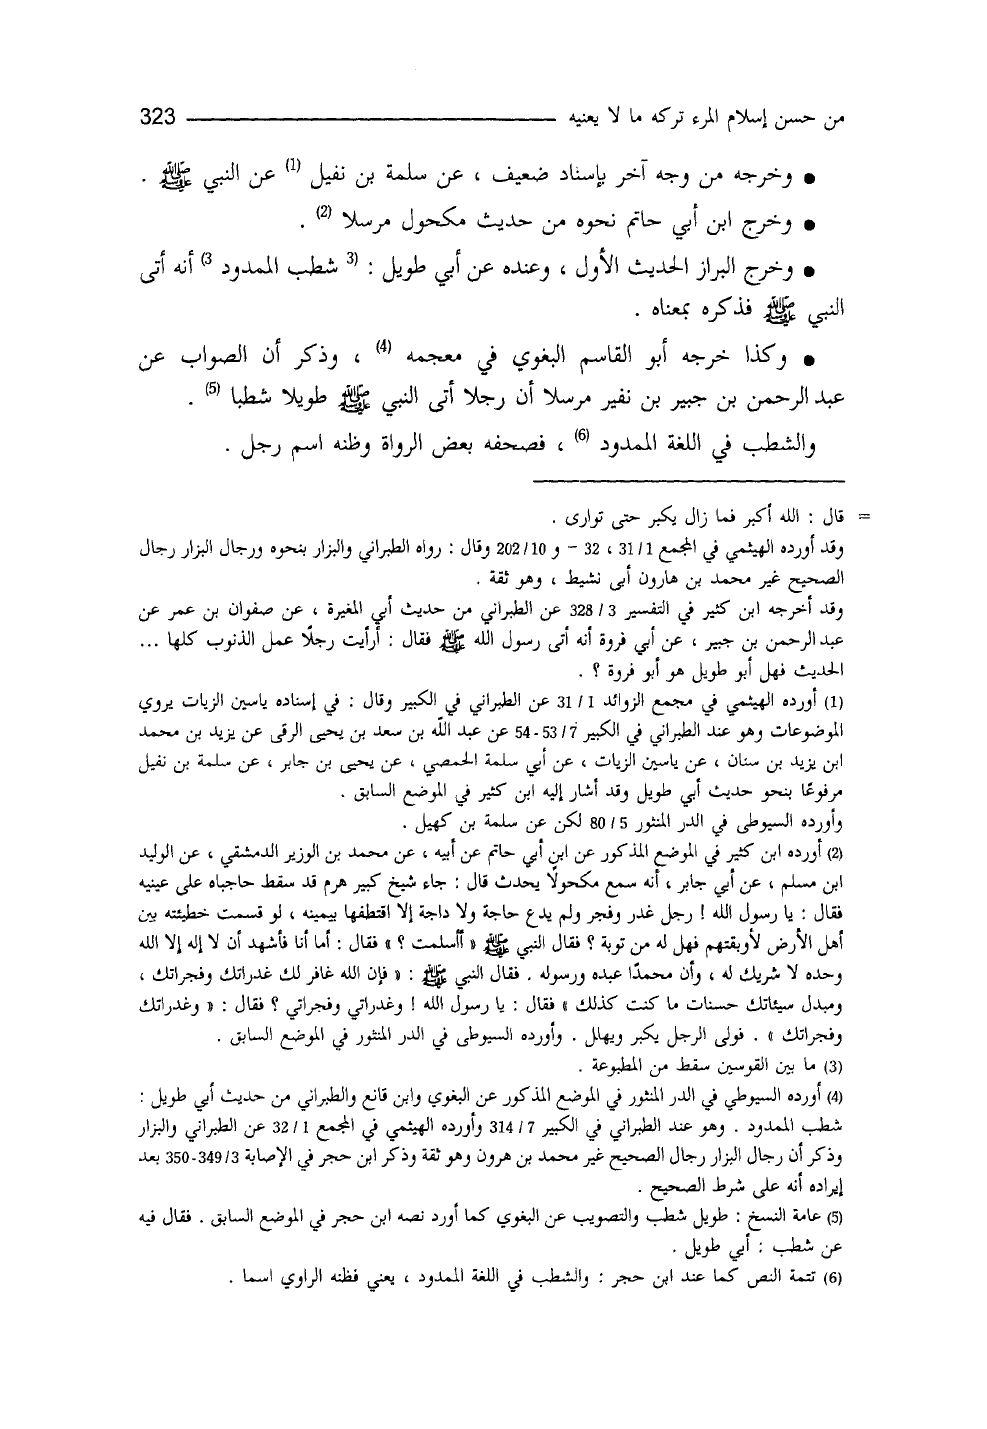 من حسن إسلام المرء تركه ما لا يعنيه 323
● وخرجه من وجه آخر بإسناد ضعيف ، عن سلمة بن نفيل (1) عن النبي ﷺ .
● وخرج ابن أبي حاتم نحوه من حديث مكحول مرسلا (2) .
● وخرج البزار الحديث الأول ، وعنده عن أبي طويل : (3 شطب الممدود 3) أنه أتى
النبي ﷺ فذكره بمعناه .
● وكذا خرجه أبو القاسم البغوي في معجمه (4) ، وذكر أن الصواب عن
عبد الرحمن بن جبير بن نفير مرسلا أن رجلا أتى النبي ﷺ طويلا شطبا (5) .
والشطب في اللغة الممدود (6) ، فصحفه بعض الرواة وظنه اسم رجل .
= قال : الله أكبر فما زال يكبر حتى توارى .
وقد أورده الهيثمي في المجمع 31/1 ، 32 - و 202/10 وقال : رواه الطبراني والبزار بنحوه ورجال البزار رجال
الصحيح غير محمد بن هارون أبى نشيط ، وهو ثقة .
وقد أخرجه ابن كثير في التفسير 328/3 عن الطبراني من حديث أبي المغيرة ، عن صفوان بن عمر عن
عبد الرحمن بن جبير ، عن أبي فروة أنه أتى رسول الله ﷺ فقال : أرأيت رجلًا عمل الذنوب كلها ...
الحديث فهل أبو طويل هو أبو فروة ؟ .
(1) أورده الهيثمي في مجمع الزوائد 31/1 عن الطبراني في الكبير وقال : في إسناده ياسين الزيات يروي
الموضوعات وهو عند الطبراني في الكبير 53/7-54 عن عبد الله بن سعد بن يحيى الرقى عن يزيد بن محمد
ابن يزيد بن سنان ، عن ياسين الزيات ، عن أبي سلمة الحمصي ، عن يحيى بن جابر ، عن سلمة بن نفيل
مرفوعًا بنحو حديث أبي طويل وقد أشار إليه ابن كثير في الموضع السابق .
وأورده السيوطى في الدر المنثور 80/5 لكن عن سلمة بن كهيل .
(2) أورده ابن كثير في الموضع المذكور عن ابن أبي حاتم عن أبيه ، عن محمد بن الوزير الدمشقي ، عن الوليد
ابن مسلم ، عن أبي جابر ، أنه سمع مكحولًا يحدث قال : جاء شيخ كبير هرم قد سقط حاجباه على عينيه
فقال : يا رسول الله ! رجل غدر وفجر ولم يدع حاجة ولا داجة إلا اقتطفها بيمينه ، لو قسمت خطيئته بين
أهل الأرض لأوبقتهم فهل له من توبة ؟ فقال النبي ﷺ « أأسلمت ؟ » فقال : أما أنا فأشهد أن لا إله إلا الله
وحده لا شريك له ، وأن محمدًا عبده ورسوله . فقال النبي ﷺ : « فإن الله غافر لك غدراتك وفجراتك ،
ومبدل سيئاتك حسنات ما كنت كذلك » فقال : يا رسول الله ! وغدراتي وفجراتي ؟ فقال : « وغدراتك
وفجراتك » . فولى الرجل يكبر ويهلل . وأورده السيوطى في الدر المنثور في الموضع السابق .
(3) ما بين القوسين سقط من المطبوعة .
(4) أورده السيوطي في الدر المنثور في الموضع المذكور عن البغوي وابن قانع والطبراني من حديث أبي طويل :
شطب الممدود . وهو عند الطبراني في الكبير 314/7 وأورده الهيثمي في المجمع 32/1 عن الطبراني والبزار
وذكر أن رجال البزار رجال الصحيح غير محمد بن هرون وهو ثقة وذكر ابن حجر في الإصابة 349/3-350 بعد
إيراده أنه على شرط الصحيح .
(5) عامة النسخ : طويل شطب والتصويب عن البغوي كما أورد نصه ابن حجر في الموضع السابق . فقال فيه
عن شطب : أبي طويل .
(6) تتمة النص كما عند ابن حجر : والشطب في اللغة الممدود ، يعني فظنه الراوي اسما .